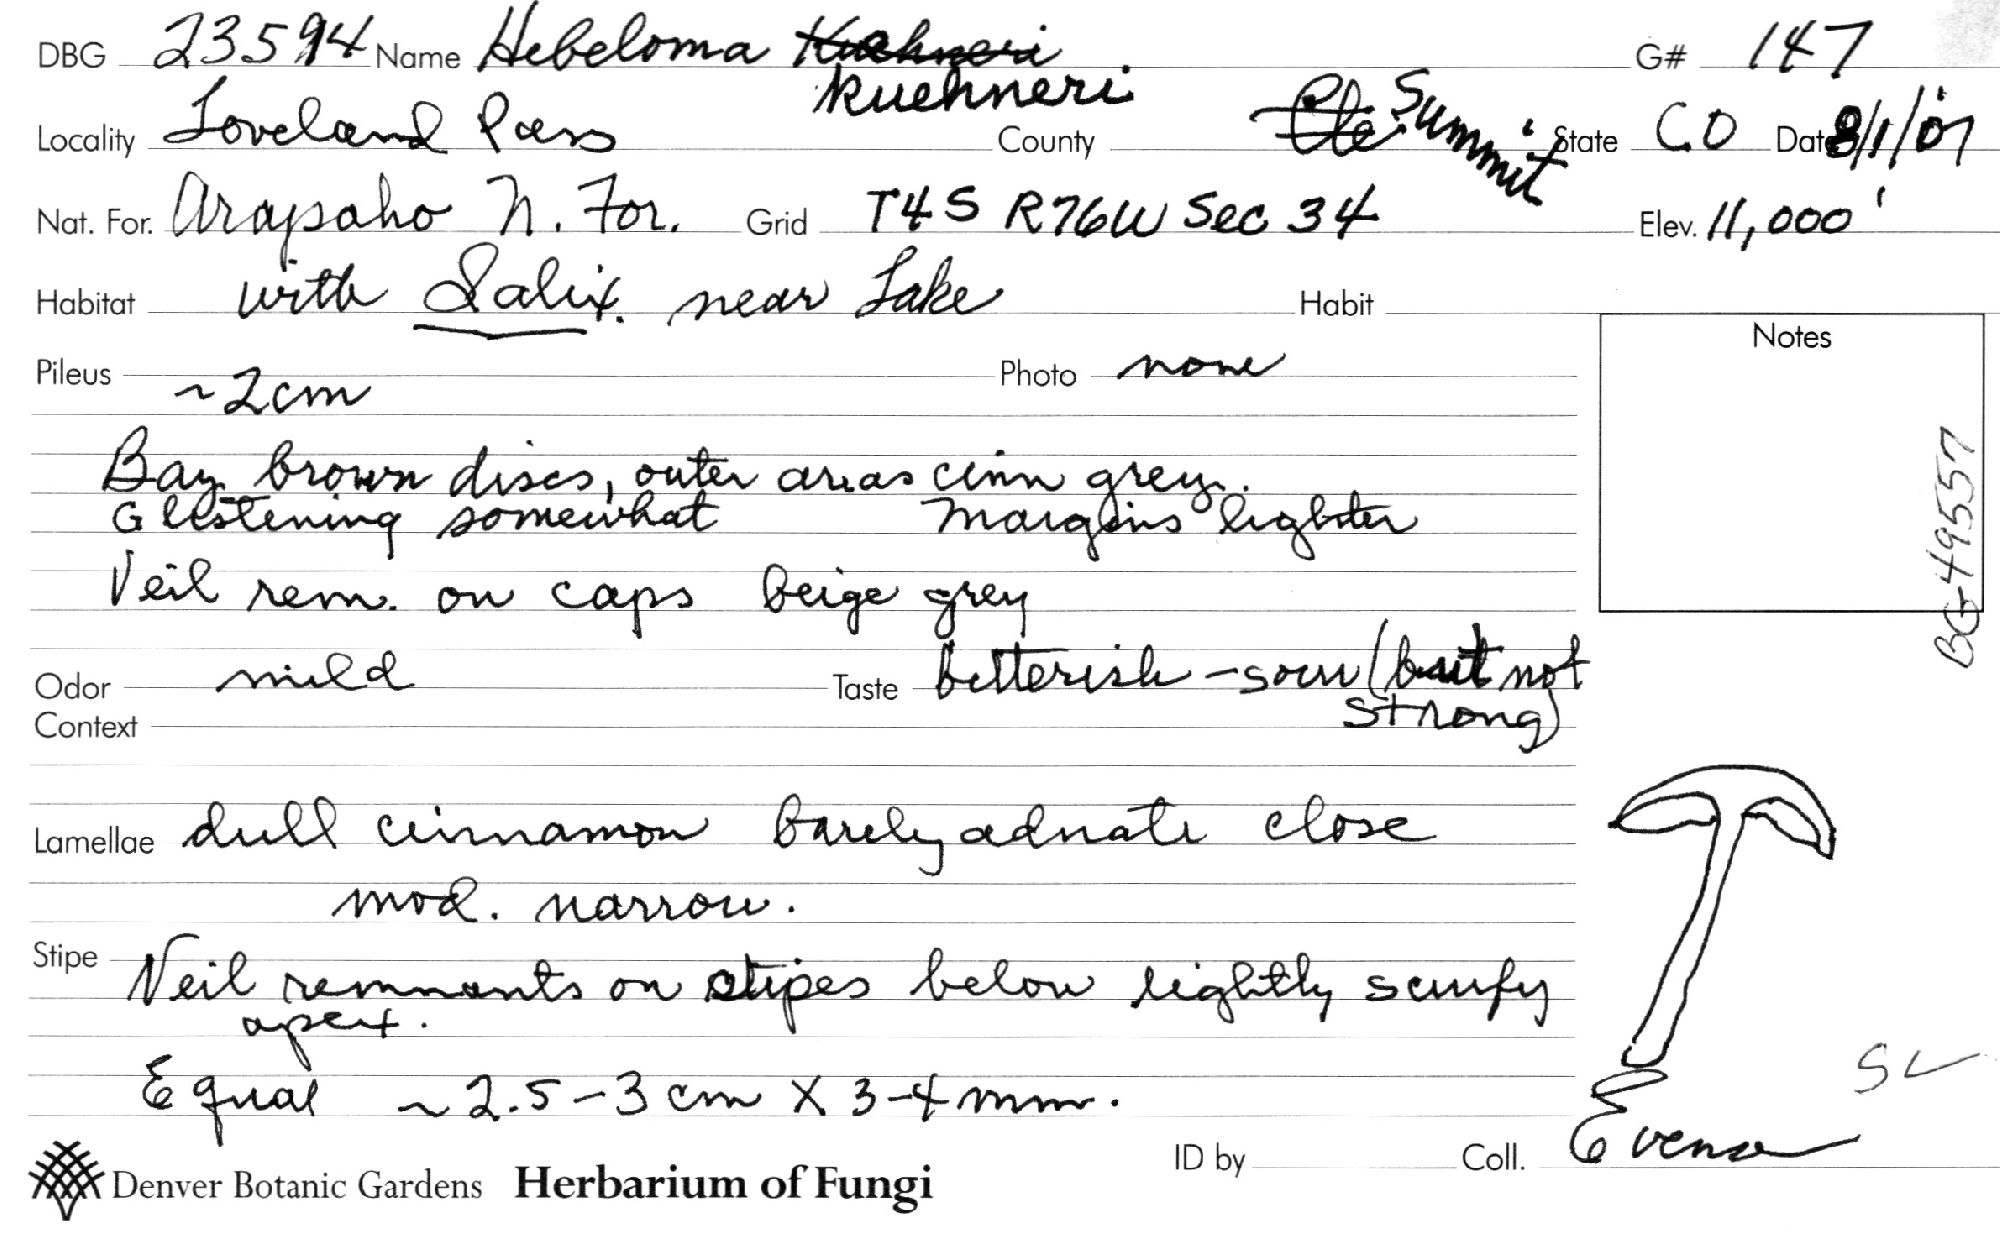 DBG 23594 Name Hebeloma Kuehneri G# 147
kuehneri
Locality Loveland Pass County Summit State CO Date 8/1/07
Nat. For. Arapaho N. For. Grid T4S R76W Sec 34 Elev. 11,000'
Habitat with Salix. near Lake Habit
Notes
Pileus ~2cm Photo none
Bay brown discs, outer areas cinn grey.
Glistening somewhat Margins lighter
Veil rem. on caps beige grey
BG 49557
Odor mild Taste bitterish - sour (but not
strong)
Context
Lamellae dull cinnamon barely adnate close
mod. narrow.
Stipe Veil remnants on stipes below lightly scurfy
apex.
Equal ~2.5-3 cm X 3-4 mm.
SL
ID by Coll. Evenson
Denver Botanic Gardens Herbarium of Fungi